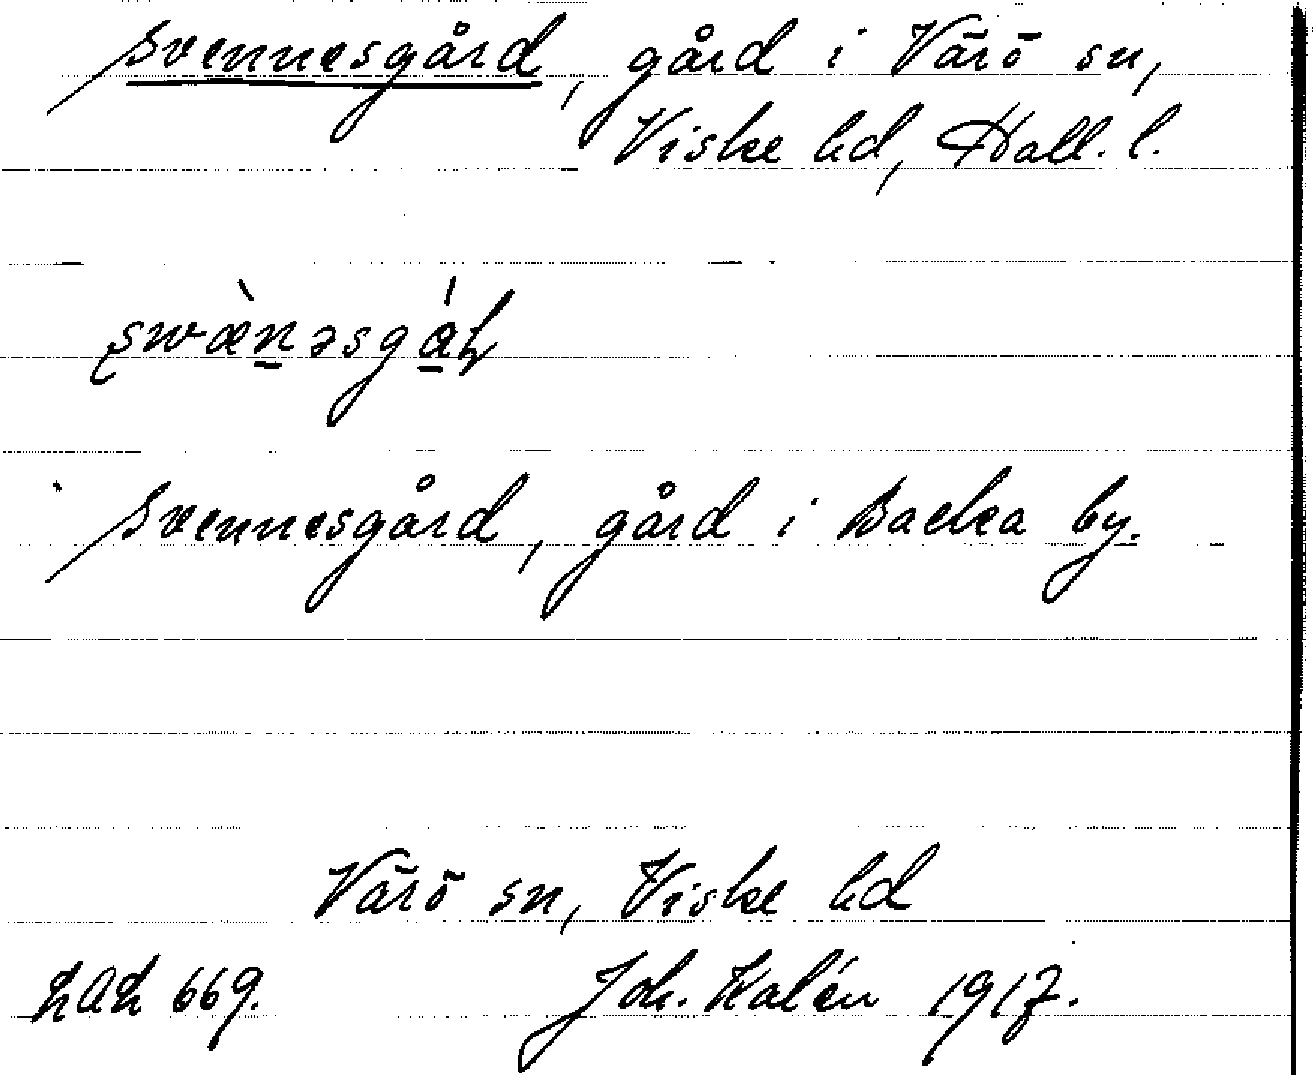 Svennesgård, gård i Värö sn,
Viske hd, Hall. l.
Svennesgård, gård i Backa by.
Värö sn, Viske hd
LAL 669. Joh. Kalén 1917.